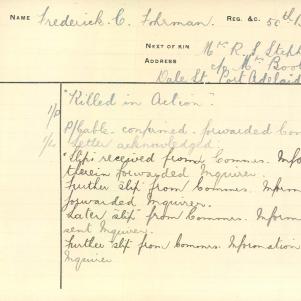 NAME Frederick. C. Fohrman. REG. &C. 50th B
NEXT OF KIN Mr R. J. Steph
ADDRESS c/o Mrs Boo
Dale St. Port Adelaid
"Killed in Action".
P/Cable. confirmed. forwarded Com
Letter acknowledged.
Slip received from Commrs. Infor
therein forwarded Inquirer.
Further slip from Commrs. Inform
forwarded Inquirer.
Later slip from Commrs. Inform
sent Inquirer.
Further slip from Commrs. Information
Inquirer